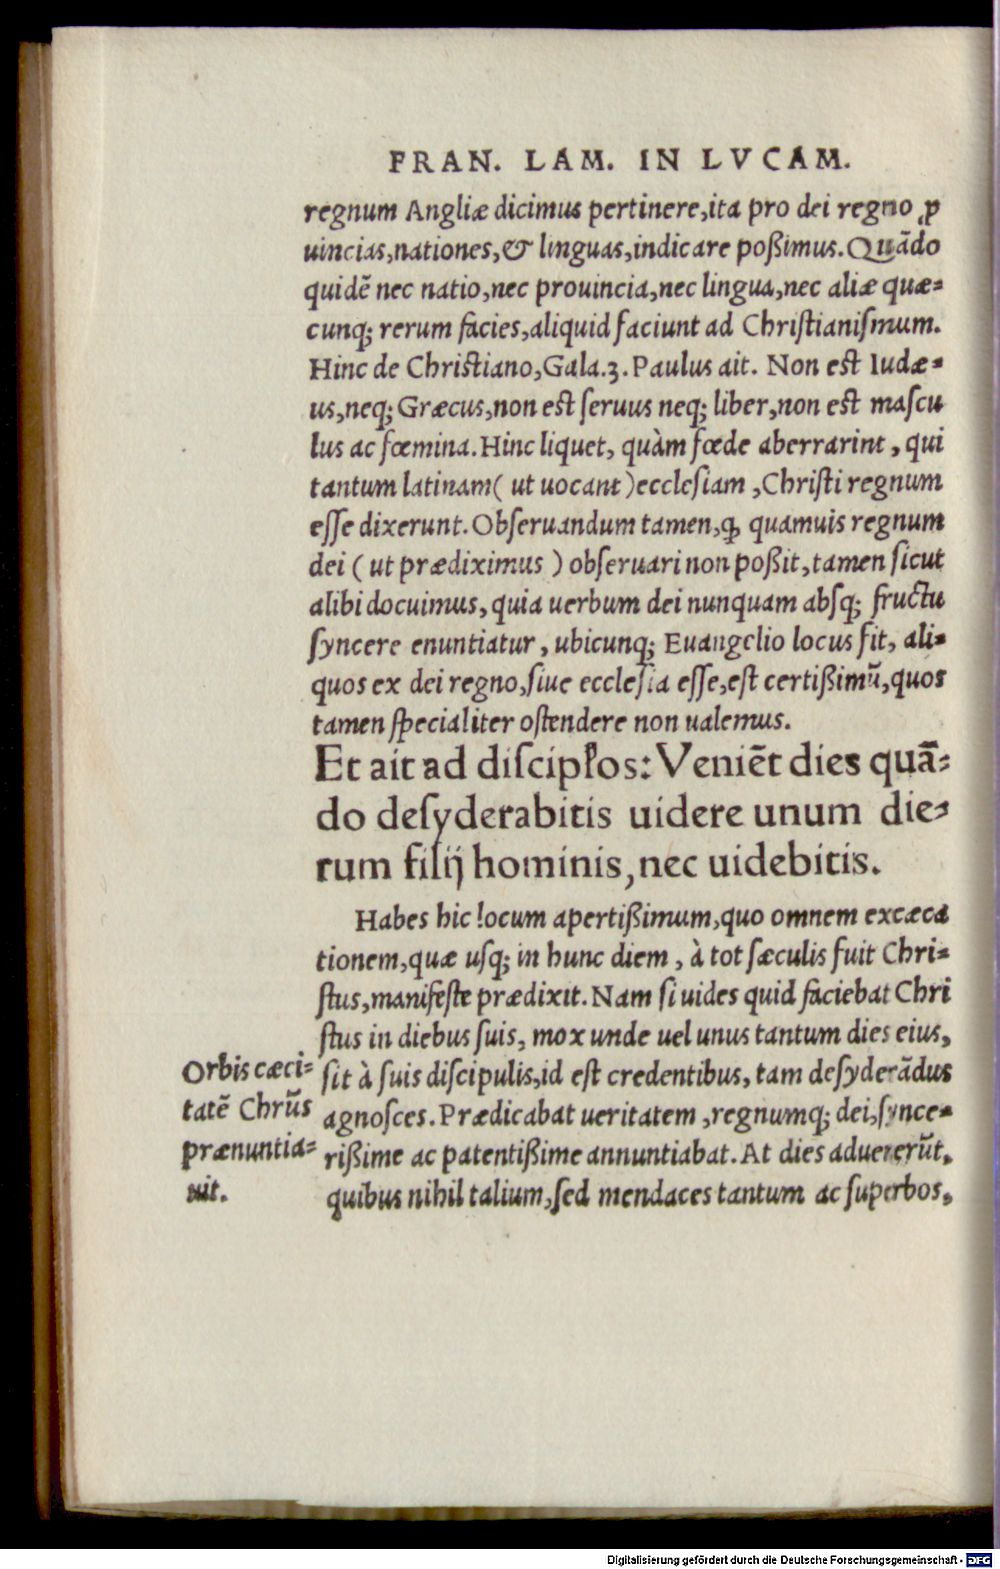 FRAN. LAM. IN LVCAM.
regnum Angliæ dicimus pertinere,ita pro dei regno ꝓ
uincias,nationes,& linguas,indicare poßimus. Quãdo
quidẽ nec natio,nec prouincia,nec lingua,nec aliæ quæ-
cunq; rerum facies,aliquid faciunt ad Chriſtianiſmum.
Hinc de Chriſtiano,Gala.3. Paulus ait. Non eſt Iudæ-
us,neq; Græcus,non eſt ſeruus neq; liber,non eſt maſcu
lus ac fœmina. Hinc liquet, quàm fœde aberrarint, qui
tantum latinam( ut uocant )eccleſiam ,Chriſti regnum
eſſe dixerunt. Obſeruandum tamen,ꝙ quamuis regnum
dei ( ut prædiximus ) obſeruari non poßit,tamen ſicut
alibi docuimus, quia uerbum dei nunquam abſq; fructu
ſyncere enuntiatur, ubicunq; Euangelio locus fit, ali-
quos ex dei regno,ſiue eccleſia eſſe,eſt certißimũ,quos
tamen ſpecialiter oſtendere non ualemus.
Et ait ad diſcipłos: Veniẽt dies quã-
do deſyderabitis uidere unum die-
rum filij hominis,nec uidebitis.
Habes hic locum apertißimum,quo omnem excæca
tionem,quæ uſq; in hunc diem , à tot ſæculis fuit Chri-
ſtus,manifeſte prædixit. Nam ſi uides quid faciebat Chri
ſtus in diebus ſuis, mox unde uel unus tantum dies eius,
ſit à ſuis diſcipulis,id eſt credentibus, tam deſyderãdus
agnoſces. Prædicabat ueritatem ,regnumq; dei,ſynce-
rißime ac patentißime annuntiabat. At dies aduenerũt,
quibus nihil talium,ſed mendaces tantum ac ſuperbos,
Orbis cæci-
tatẽ Chrũs
prænuntia-
uit.
Digitalisierung gefördert durch die Deutsche Forschungsgemeinschaft - DFG